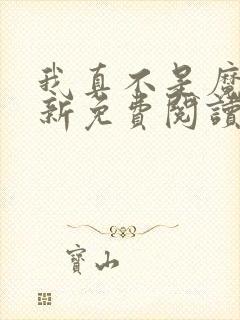 我真不是魔
新免費閱讀
寶山